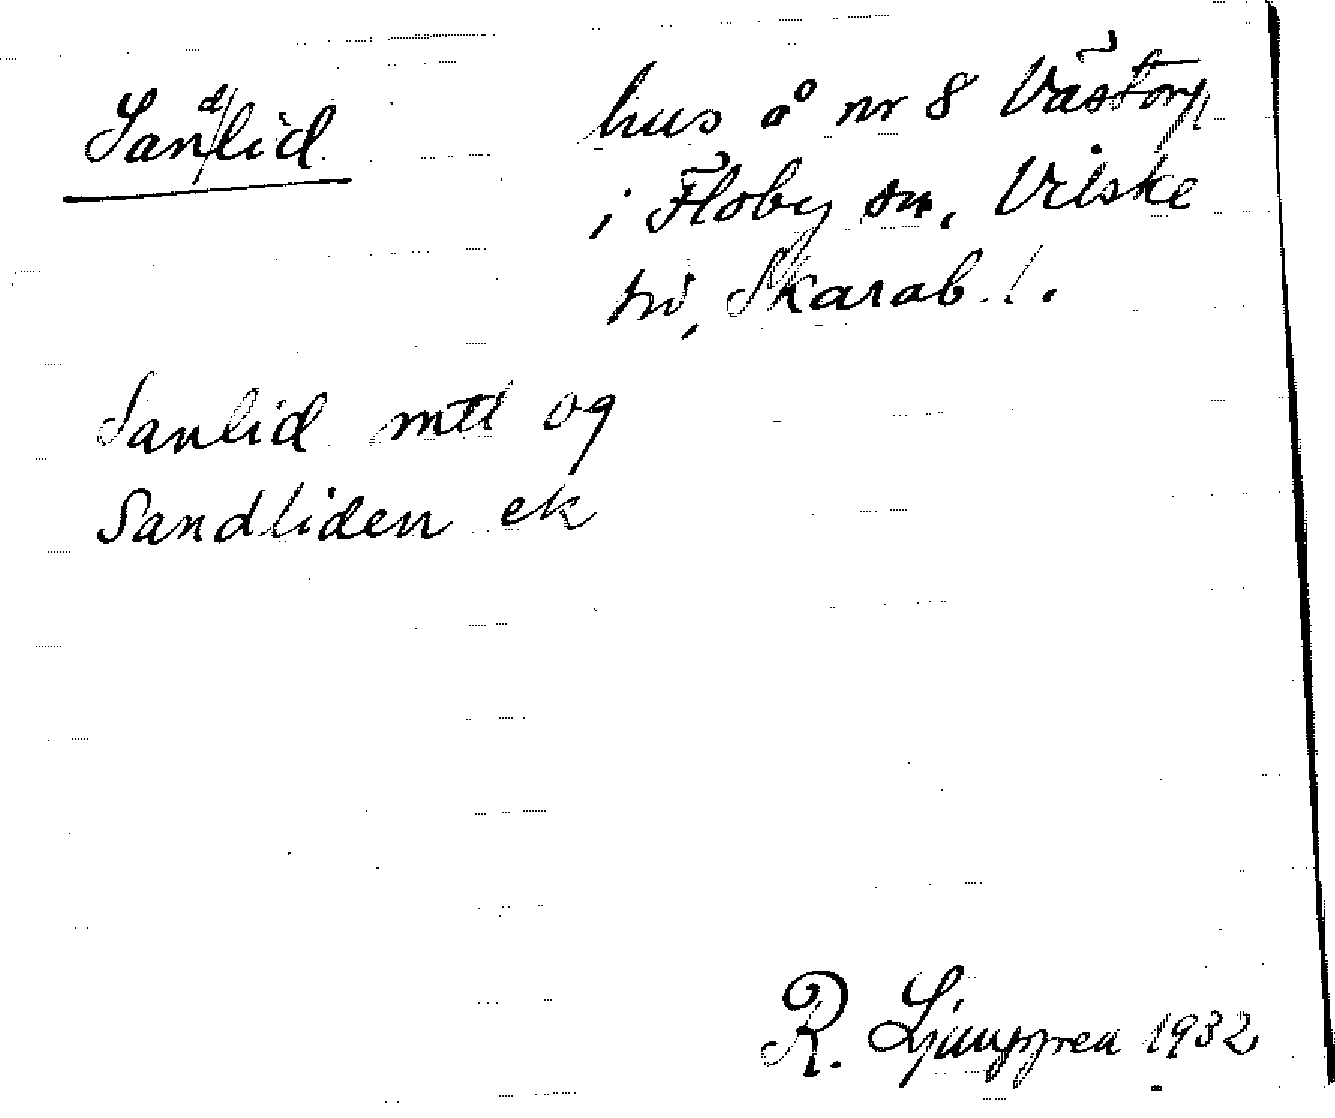 Sandlid
hus å nr 8 Västorp
i Floby sn, Vilske
hd, Skarab. l.
Sanlid mtl og
Sandliden ek
R. Ljunggren 1932